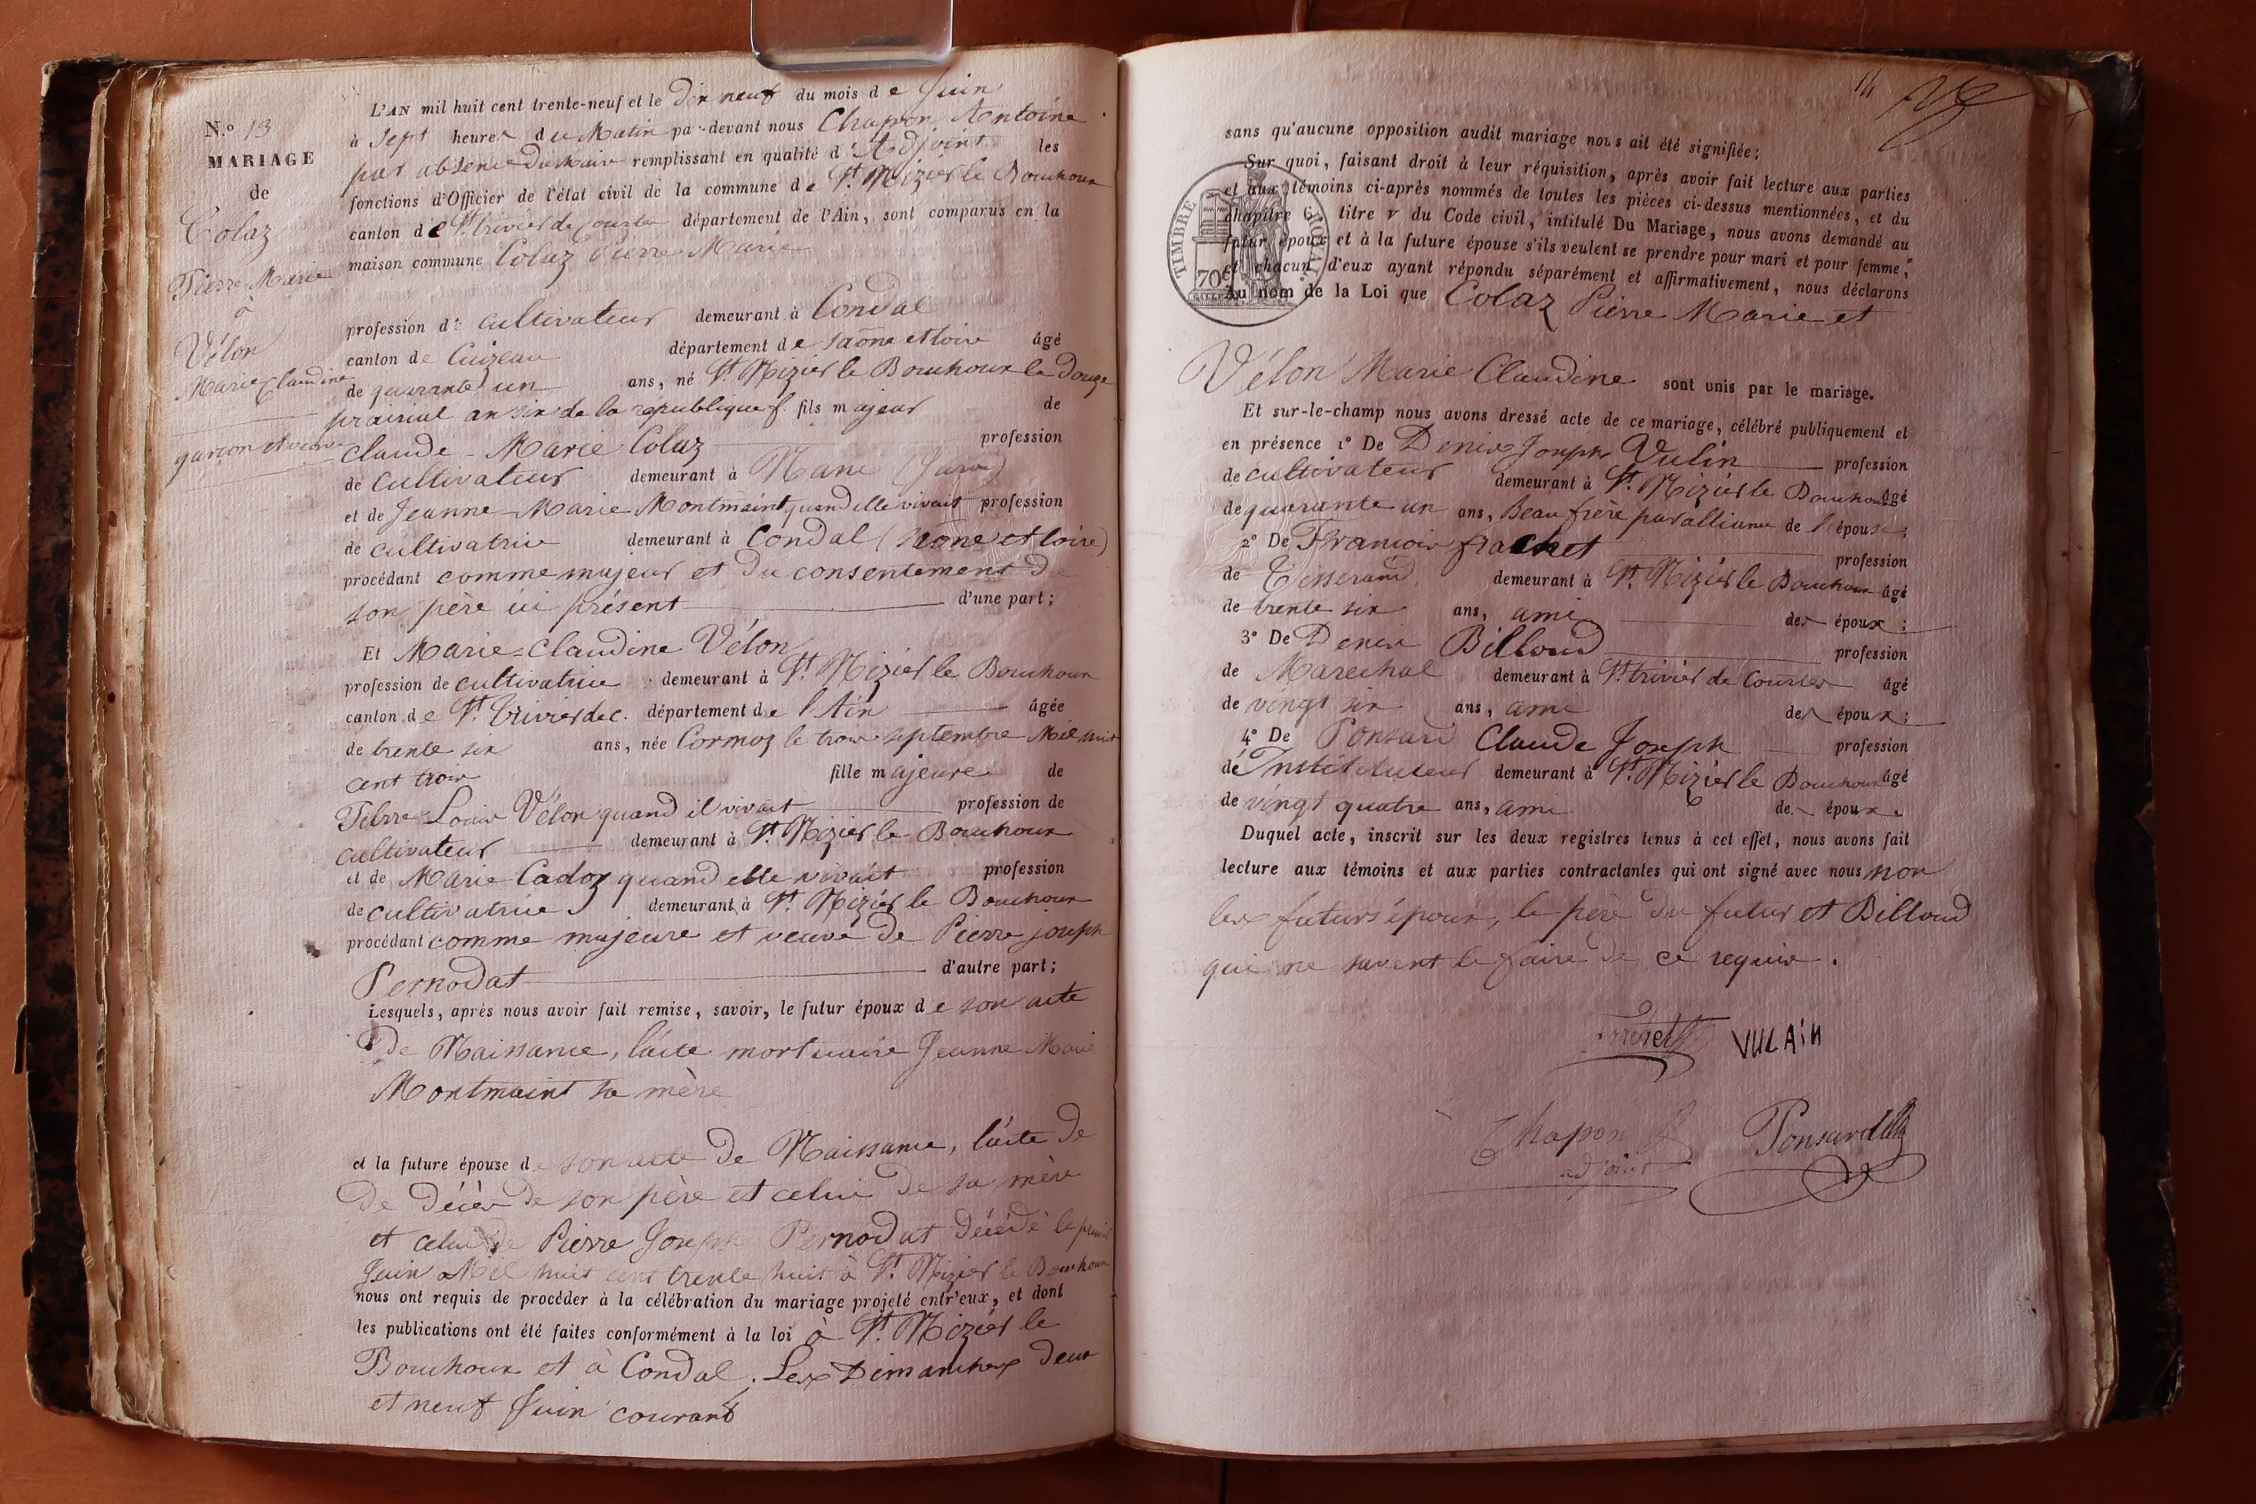 N.o 13
MARIAGE
de
Colaz
Pierre Marie
à
Vélon
Marie Claudine
garçon et veuve
L'AN mil huit cent trente-neuf et le dix neuf du mois de Juin
à Sept heures du Matin par-devant nous Chapon Antoine
par absence du Maire remplissant en qualité d'Adjoint les
fonctions d'Officier de l'état civil de la commune de St. Nizier le Bouchoux
canton de St. trivier de Courtes département de l'Ain, sont comparus en la
maison commune Colaz Pierre Marie
profession de cultivateur demeurant à Condal
canton de Cuizeau département de Saône et Loire âgé
de quarante un ans, né St. Nizier le Bouchoux le douze
prairial an six de la republique f. fils majeur de
Claude-Marie Colaz profession
de cultivateur demeurant à Nanc (Jura)
et de Jeanne-Marie Montmaint quand elle vivait profession
de cultivatrice demeurant à Condal (Saône et Loire)
procédant comme majeur et du consentement de
son père ici présent d'une part;
Et Marie-Claudine Vélon
profession de cultivatrice demeurant à St. Nizier le Bouchoux
canton de St. Trivier de c. département de l'Ain âgée
de trente six ans, née Cormoz le trois septembre Mil huit
cent trois fille majeure de
Pierre-Louis Vélon quand il vivait profession de
cultivateur demeurant à St. Nizier le Bouchoux
et de Marie Cadoz quand elle vivait profession
de cultivatrice demeurant à St. Nizier le Bouchoux
procédant comme majeure et veuve de Pierre joseph
Pernodat d'autre part;
Lesquels, après nous avoir fait remise, savoir, le futur époux de son acte
de Naissance, l'acte mortuaire Jeanne Marie
Montmaint sa mère
et la future épouse de son acte de Naissance, l'acte de
de décès de son père et celui de sa mère
et celui de Pierre Joseph Pernodat décédé le premier
Juin Mil huit cent trente huit à St. Nizier le Bouchoux
nous ont requis de procéder à la célébration du mariage projeté entr'eux, et dont
les publications ont été faites conformément à la loi à St. Nizier le
Bouchoux et à Condal. Les Dimanches deux
et neuf Juin courant
14
sans qu'aucune opposition audit mariage nous ait été signifiée;
Sur quoi, faisant droit à leur réquisition, après avoir fait lecture aux parties
et aux témoins ci-après nommés de toutes les pièces ci-dessus mentionnées, et du
chapitre 6, titre v du Code civil, intitulé Du Mariage, nous avons demandé au
futur époux et à la future épouse s'ils veulent se prendre pour mari et pour femme;
et chacun d'eux ayant répondu séparément et affirmativement, nous déclarons
Au nom de la Loi que Colaz Pierre Marie et
TIMBRE ROYAL
70c
Vélon Marie Claudine sont unis par le mariage.
Et sur-le-champ nous avons dressé acte de ce mariage, célébré publiquement et
en présence 1o De Denis Joseph Vulin profession
de cultivateur demeurant à St. Nizier le Bouchoux âgé
de quarante un ans, Beau frère par alliance de l'épouse;
2o De François frachet profession
de Tisserand demeurant à St. Nizier le Bouchoux âgé
de trente six ans, ami des époux;
3o De Denis Billoud profession
de Marechal demeurant à St. trivier de Courtes âgé
de vingt six ans, ami des époux;
4o De Ponsard Claude Joseph profession
d'Instituteur demeurant à St. Nizier le Bouchoux âgé
de vingt quatre ans, ami des époux.
Duquel acte, inscrit sur les deux registres tenus à cet effet, nous avons fait
lecture aux témoins et aux parties contractantes qui ont signé avec nous non
les futurs époux, le père du futur et Billoud
qui ne savent le faire de ce requis.
VULAIN
Chapon
adjoint
Ponsard